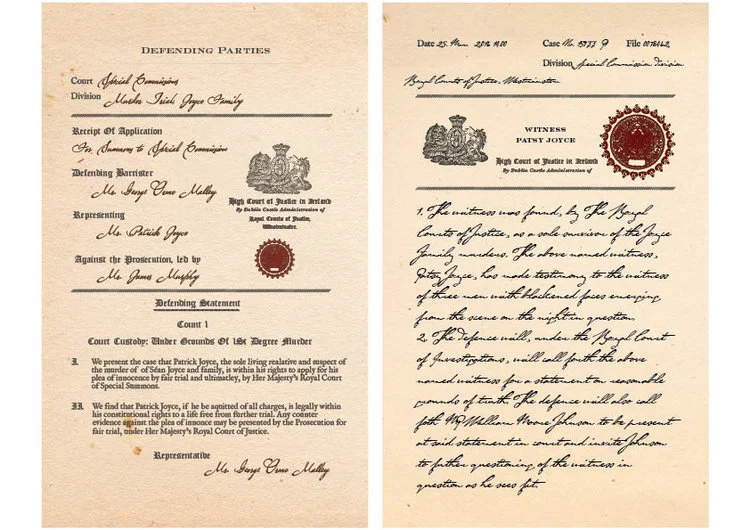 DEFENDING PARTIES
Court Special Commissions
Division Murder Trial Joyce Family
Receipt Of Application
For Summons to Special Commission
Defending Barrister
Mr. George Malley
Representing
Mr. Patrick Joyce
Against the Prosecution, led by
Mr. James Murphy
High Court of Justice in Ireland
By Dublin Castle Administration of
Royal Courts of Justice,
Westminster.
Defending Statement
Count 1
Court Custody: Under Grounds Of 1St Degree Murder
I. We present the case that Patrick Joyce, the sole living realative and suspect of
the murder of of Séan Joyce and family, is within his rights to apply for his
plea of innocence by fair trial and ultimatley, by Her Majesty's Royal Court
of Special Summons.
II. We find that Patrick Joyce, if he be aqitted of all charges, is legally within
his constitutional rights to a life free from further trial. Any counter
evidence against the plea of innonce may be presented by the Prosecution for
fair trial, under Her Majesty's Royal Court of Justice.
Representative
Mr. George Malley
Date 25. Case No. File
Division Special Commission Division
Royal Courts of Justice, Westminster
WITNESS
PATSY JOYCE
High Court of Justice in Ireland
By Dublin Castle Administration of
1. The witness was found, by The Royal
Courts of Justice, as a sole survivor of the Joyce
Family murders. The above named witness,
Patsy Joyce, has made testimony to the witness
of three men with blackened faces emerging
from the scene on the night in question.
2. The defence will, under the Royal Court
of Investigations, will call forth the above
named witness for a statement on reasonable
grounds of truth. The defence will also call
foth Mr William Moore Johnson to be present
at said statement in court and invite Johnson
to futher questioning of the witness in
question as he sees fit.